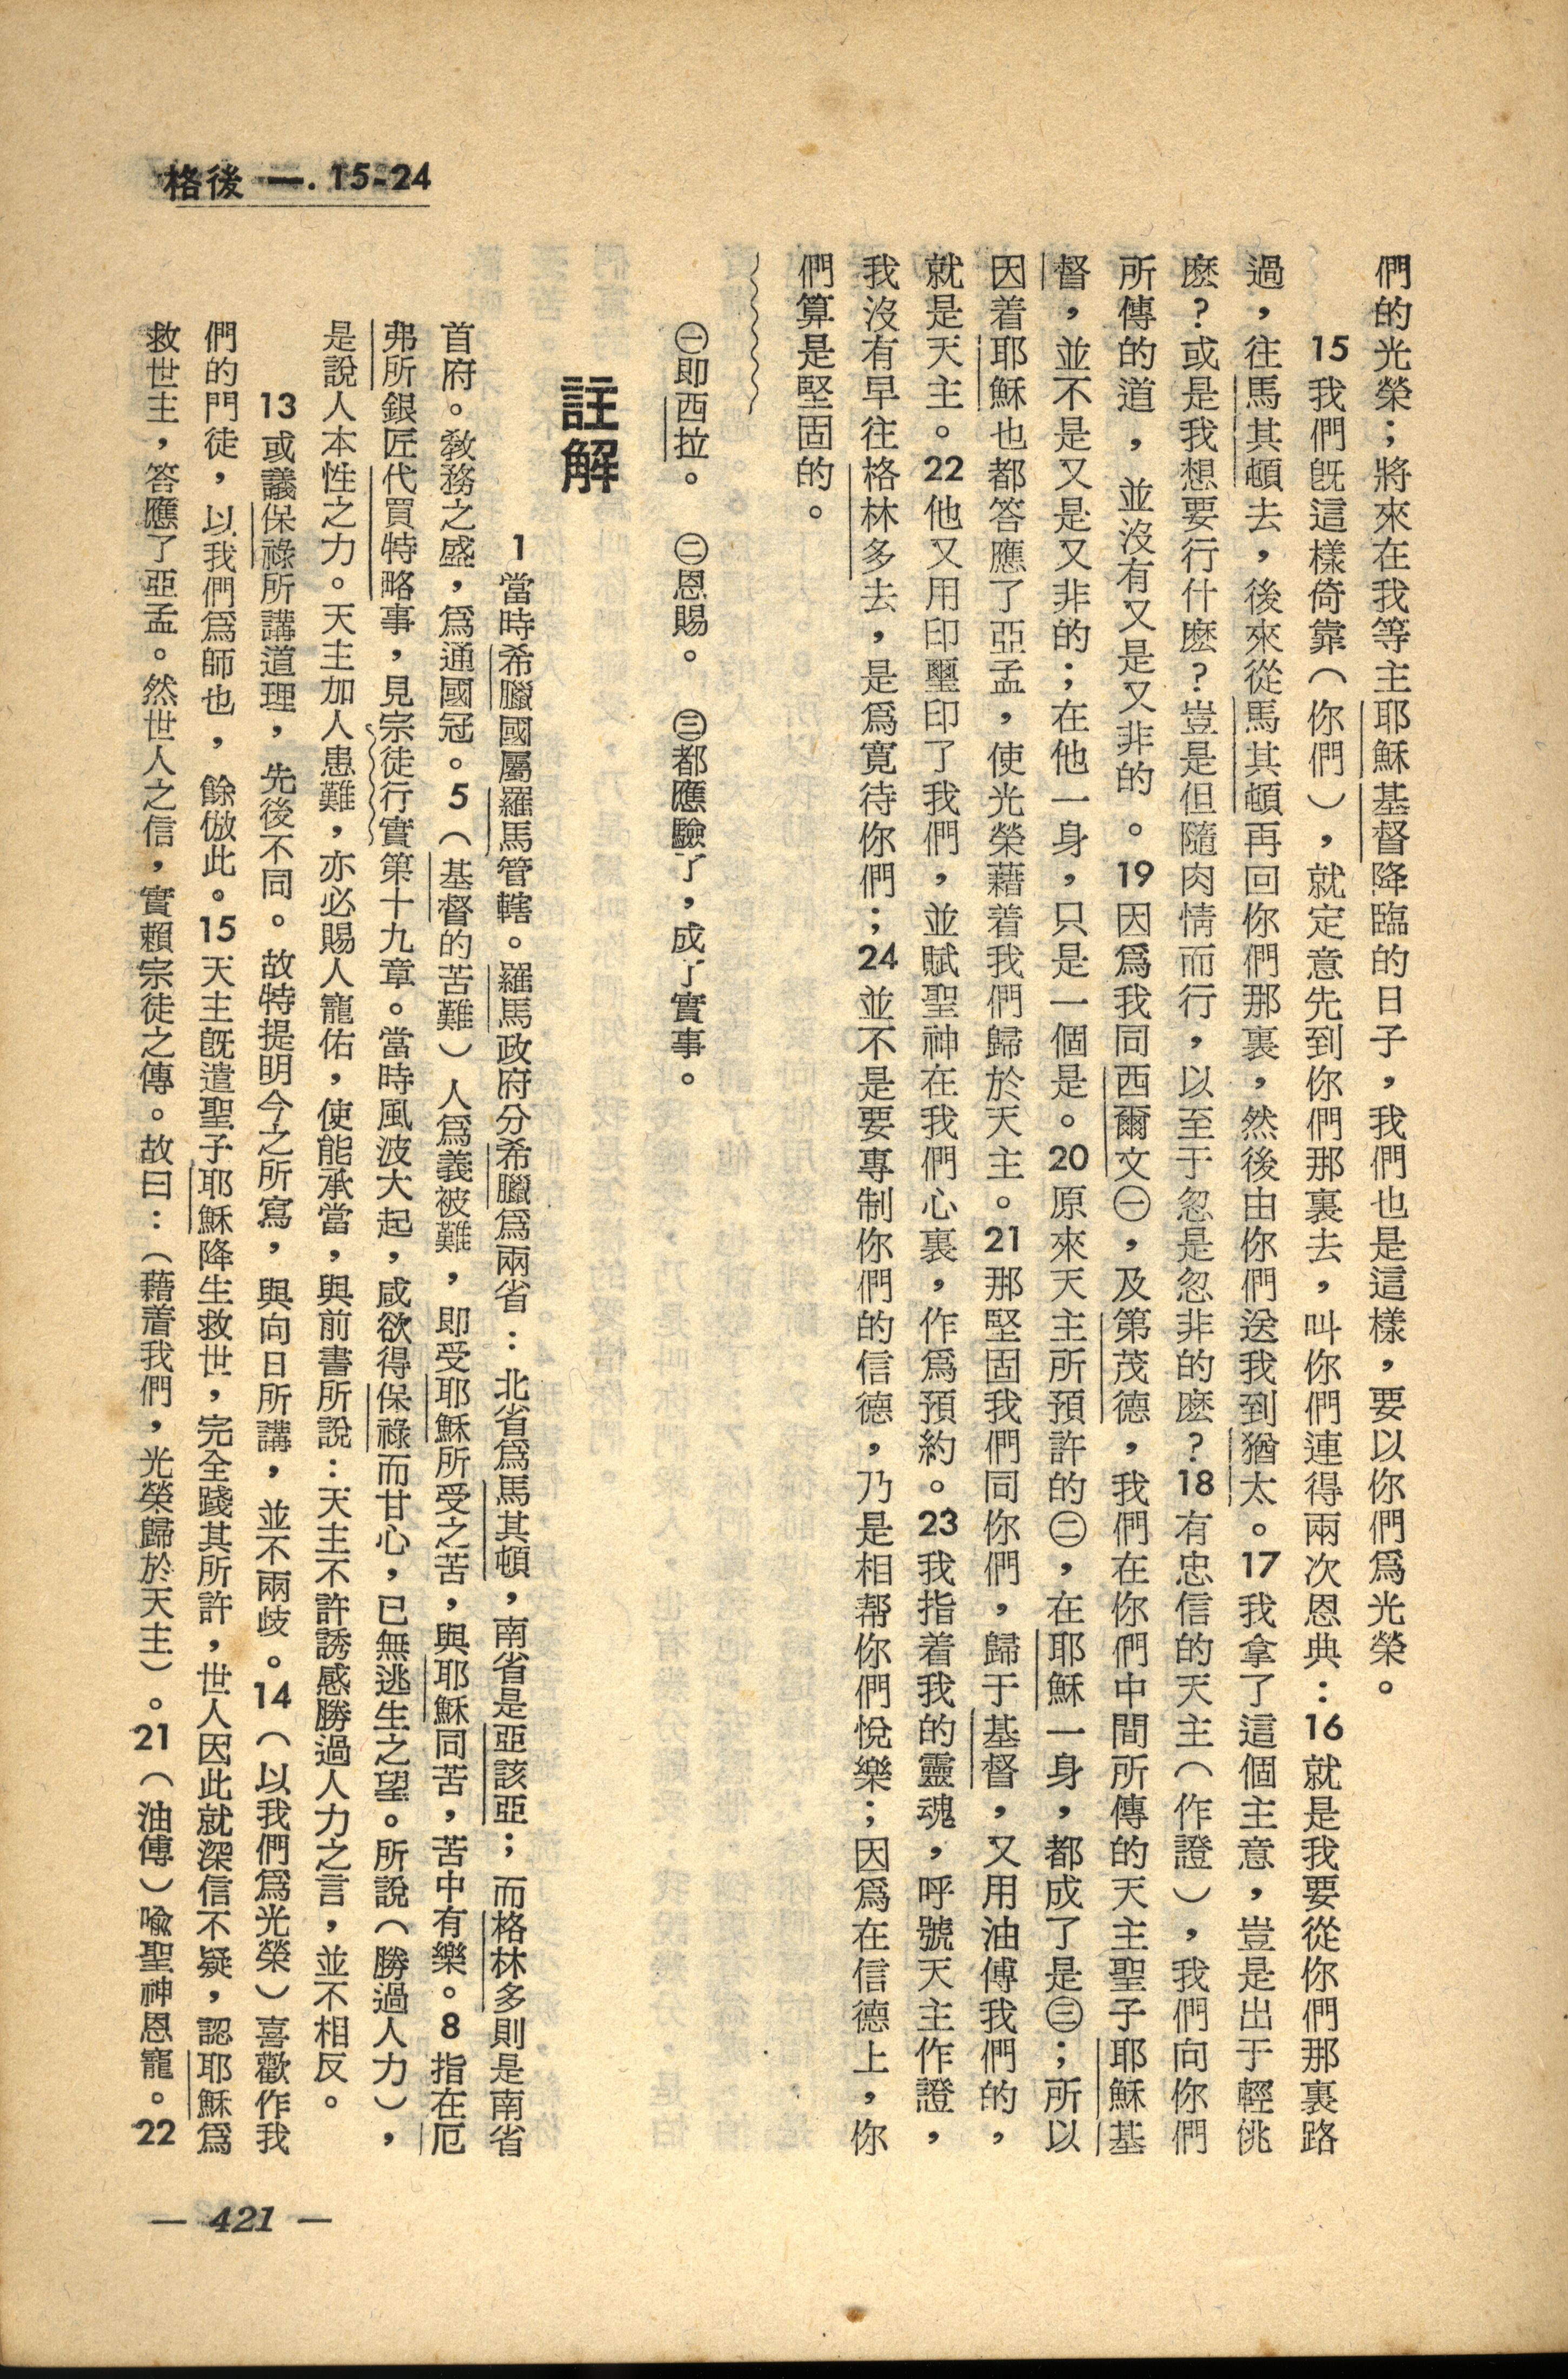 格後 一. 15-24
們的光榮；將來在我等主耶穌基督降臨的日子，我們也是這樣，要以你們爲光榮。
15 我們旣這樣倚靠（你們），就定意先到你們那裏去，叫你們連得兩次恩典：16 就是我要從你們那裏路
過，往馬其頓去，後來從馬其頓再回你們那裏，然後由你們送我到猶太。17 我拿了這個主意，豈是出于輕佻
麽？或是我想要行什麽？豈是但隨肉情而行，以至于忽是忽非的麽？18 有忠信的天主（作證），我們向你們
所傳的道，並沒有又是又非的。19 因爲我同西爾文㊀，及第茂德，我們在你們中間所傳的天主聖子耶穌基
督，並不是又是又非的；在他一身，只是一個是。20 原來天主所預許的㊁，在耶穌一身，都成了是㊂；所以
因着耶穌也都答應了亞孟，使光榮藉着我們歸於天主。21 那堅固我們同你們，歸于基督，又用油傅我們的，
就是天主。22 他又用印璽印了我們，並賦聖神在我們心裏，作爲預約。23 我指着我的靈魂，呼號天主作證，
我沒有早往格林多去，是爲寬待你們；24 並不是要專制你們的信德，乃是相帮你們悅樂；因爲在信德上，你
們算是堅固的。
㊀即西拉。 ㊁恩賜。 ㊂都應驗了，成了實事。
註解
1 當時希臘國屬羅馬管轄。羅馬政府分希臘爲兩省：北省爲馬其頓，南省是亞該亞；而格林多則是南省
首府。敎務之盛，爲通國冠。5（基督的苦難）人爲義被難，即受耶穌所受之苦，與耶穌同苦，苦中有樂。8 指在厄
弗所銀匠代買特略事，見宗徒行實第十九章。當時風波大起，咸欲得保祿而甘心，已無逃生之望。所說（勝過人力），
是說人本性之力。天主加人患難，亦必賜人寵佑，使能承當，與前書所說：天主不許誘感勝過人力之言，並不相反。
13 或議保祿所講道理，先後不同。故特提明今之所寫，與向日所講，並不兩歧。14（以我們爲光榮）喜歡作我
們的門徒，以我們爲師也，餘倣此。15 天主旣遣聖子耶穌降生救世，完全踐其所許，世人因此就深信不疑，認耶穌爲
救世主，答應了亞孟。然世人之信，實賴宗徒之傳。故曰：（藉着我們，光榮歸於天主）。21（油傅）喩聖神恩寵。22
— 421 —